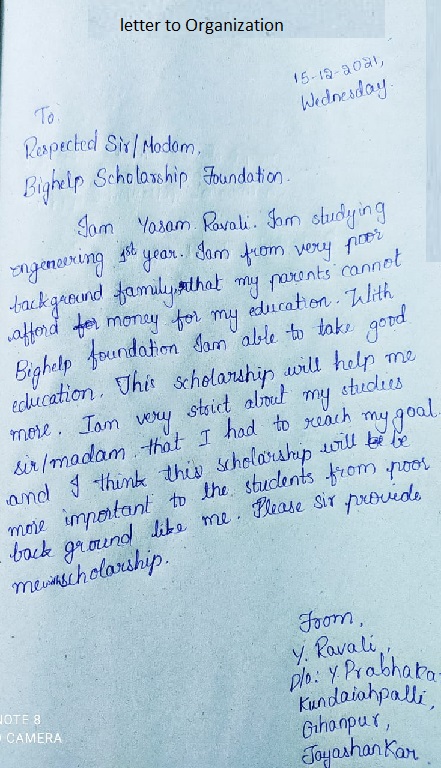 letter to Organization
15-12-2021,
Wednesday.
To.
Respected Sir/Madam,
Bighelp Scholarship Foundation.
Iam Yasam. Ravali. Iam studying
engeneering 1st year. Iam from very poor
background family, that my parents cannot
afford for money for my education. With
Bighelp foundation Iam able to take good
education. This scholarship will help me
more. Iam very strict about my studies
sir/madam. that I had to reach my goal.
and I think this scholarship will be be
more important to the students from poor
back ground like me. Please sir provide
me with scholarship.
From,
Y. Ravali,
D/o: Y. Prabhaka
Kundaiahpalli,
Ghanpur,
Jayashankar.
NOTE 8
CAMERA